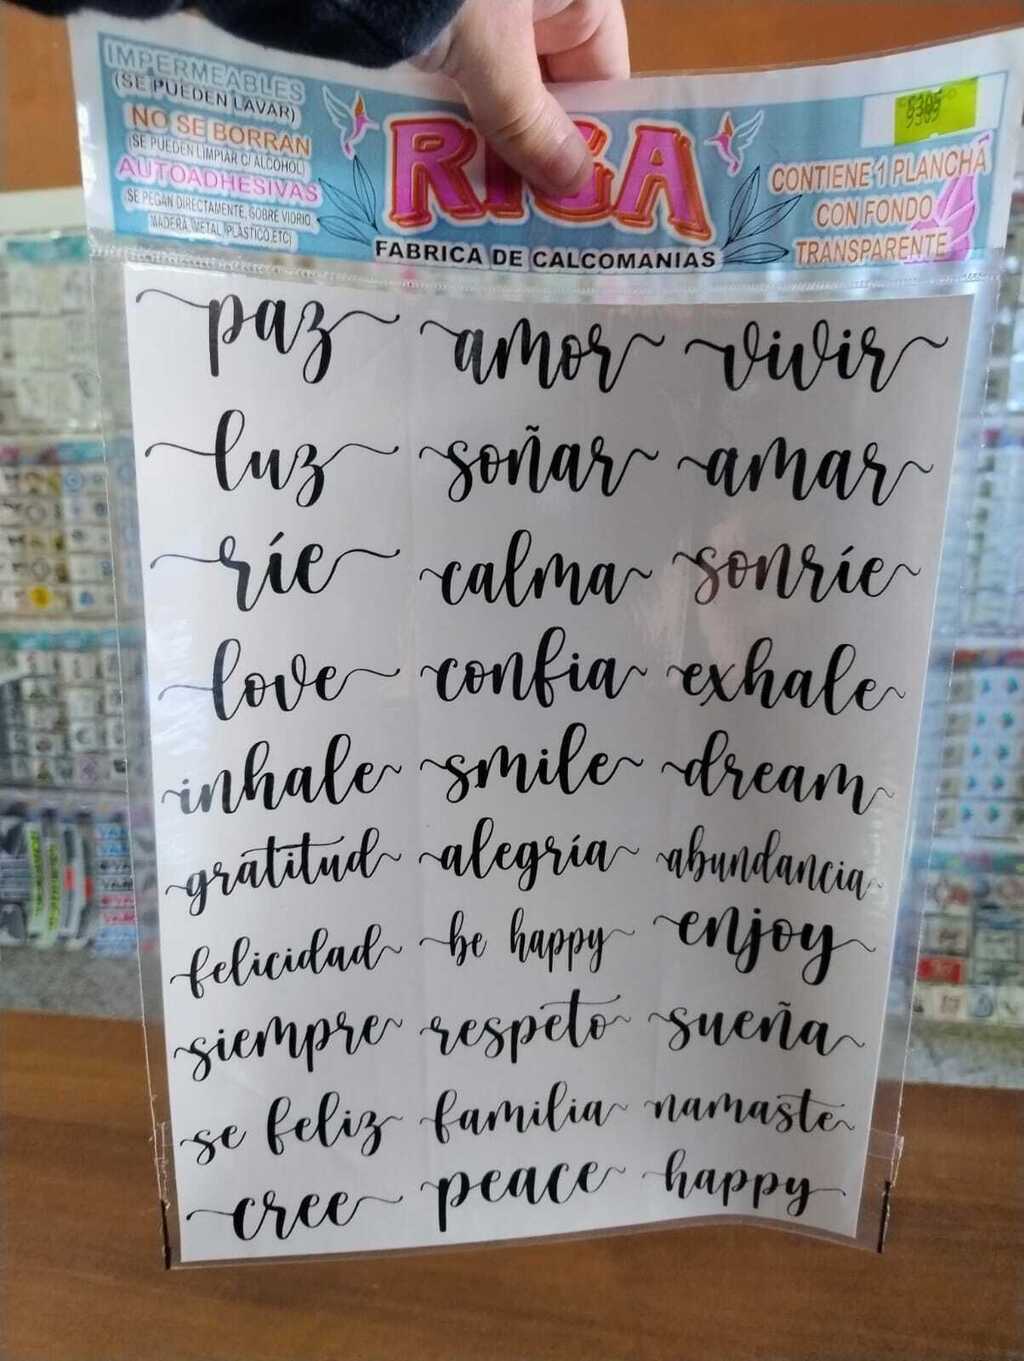 IMPERMEABLES
(SE PUEDEN LAVAR)
NO SE BORRAN
(SE PUEDEN LIMPIAR C/ ALCOHOL)
AUTOADHESIVAS
SE PEGAN DIRECTAMENTE, SOBRE VIDRIO,
MADERA, METAL, PLÁSTICO,ETC)
RIGA
FABRICA DE CALCOMANIAS
CONTIENE 1 PLANCHA
CON FONDO
TRANSPARENTE
paz amor vivir
luz soñar amar
ríe calma sonríe
love confia exhale
inhale smile dream
gratitud alegría abundancia
felicidad be happy enjoy
siempre respeto sueña
se feliz familia namaste
cree peace happy